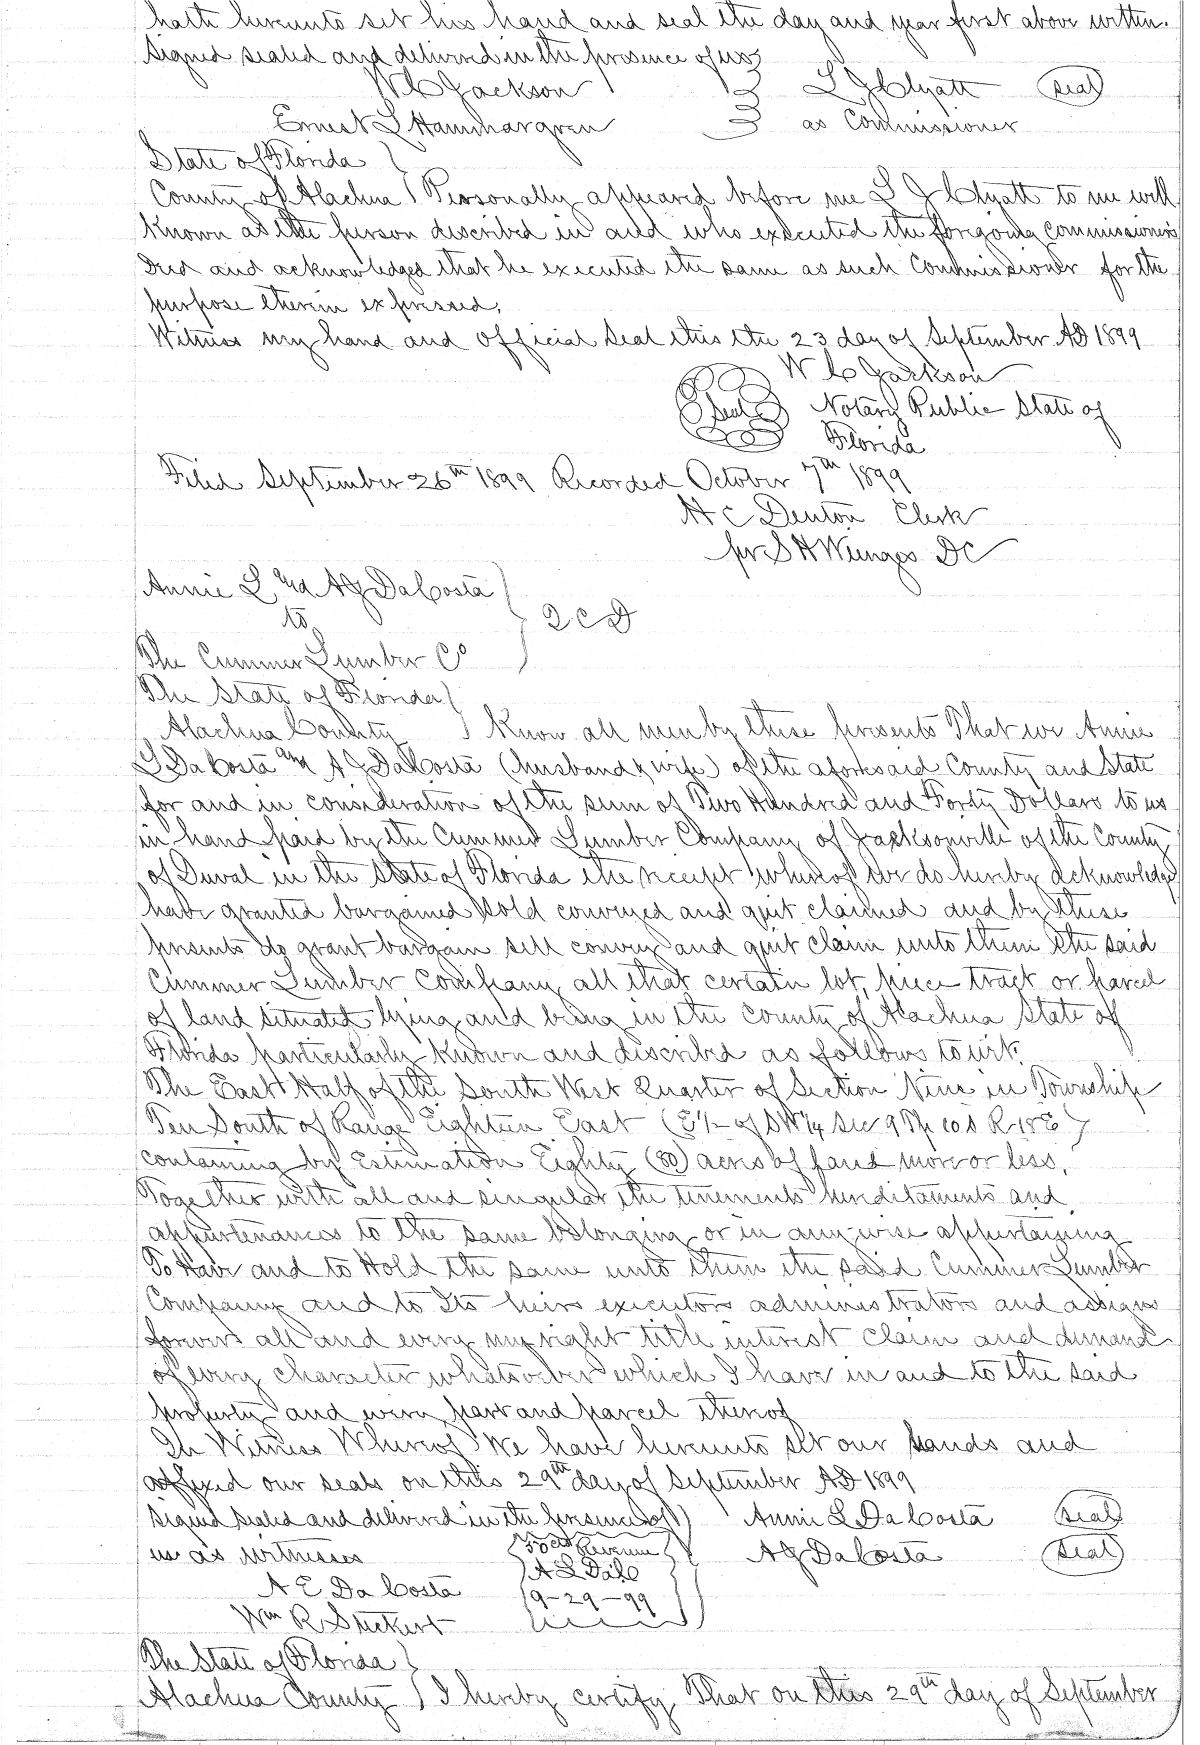 hath hereunto set his hand and seal the day and year first above written.
Signed sealed and delivered in the presence of us
W C Jackson L J Clyatt Seal
Ernest L Hammargren as Commissioner
State of Florida
County of Alachua Personally appeared before me L J Clyatt to me well
Known as the person described in and who executed the foregoing Commissioners
Deed and acknowledged that he executed the same as such Commissioner for the
purpose therein expressed.
Witness my hand and official Seal this the 23 day of September AD 1899
W C Jackson
Seal Notary Public State of
Florida
Filed September 26th 1899 Recorded October 7th 1899
H C Denton Clerk
pr S H Wienges DC
Annie L and A J DaCosta
to
Q C D
The Cummer Lumber Co
The State of Florida
Alachua County Know all men by these presents That we Annie
L DaCosta and A J DaCosta (husband & wife) of the aforesaid County and State
for and in consideration of the sum of Two Hundred and Forty Dollars to us
in hand paid by the Cummer Lumber Company of Jacksonville of the County
of Duval in the State of Florida the receipt whereof we do hereby acknowledge
have granted bargained sold conveyed and quit claimed and by these
presents do grant bargain sell convey and quit claim unto them the said
Cummer Lumber Company all that certain lot, piece tract or parcel
of land situated lying and being in the County of Alachua State of
Florida particularly known and described as follows to wit.
The East Half of the South West Quarter of Section Nine in Township
Ten South of Range Eighteen East (E 1/2 of SW 1/4 Sec 9 Tp 10 S R 18 E)
containing by Estimation Eighty (80) acres of land more or less.
Together with all and singular the tenements hereditaments and
appurtenances to the same belonging or in anywise appertaining
To Have and to Hold the same unto them the said Cummer Lumber
Company and to Its heirs executors administrators and assigns
forever all and every my right title interest claim and demand
of every character whatsoever which I have in and to the said
property and every part and parcel thereof
In Witness Whereof We have hereunto set our hands and
affixed our seals on this 29th day of September AD 1899
Signed sealed and delivered in the presence of Annie L DaCosta Seal
us as witnesses 50 cts Revenue A J DaCosta Seal
A E DaCosta A L DaC
9-29-99
Wm R Stuckert
The State of Florida
Alachua County I hereby certify That on this 29th day of September